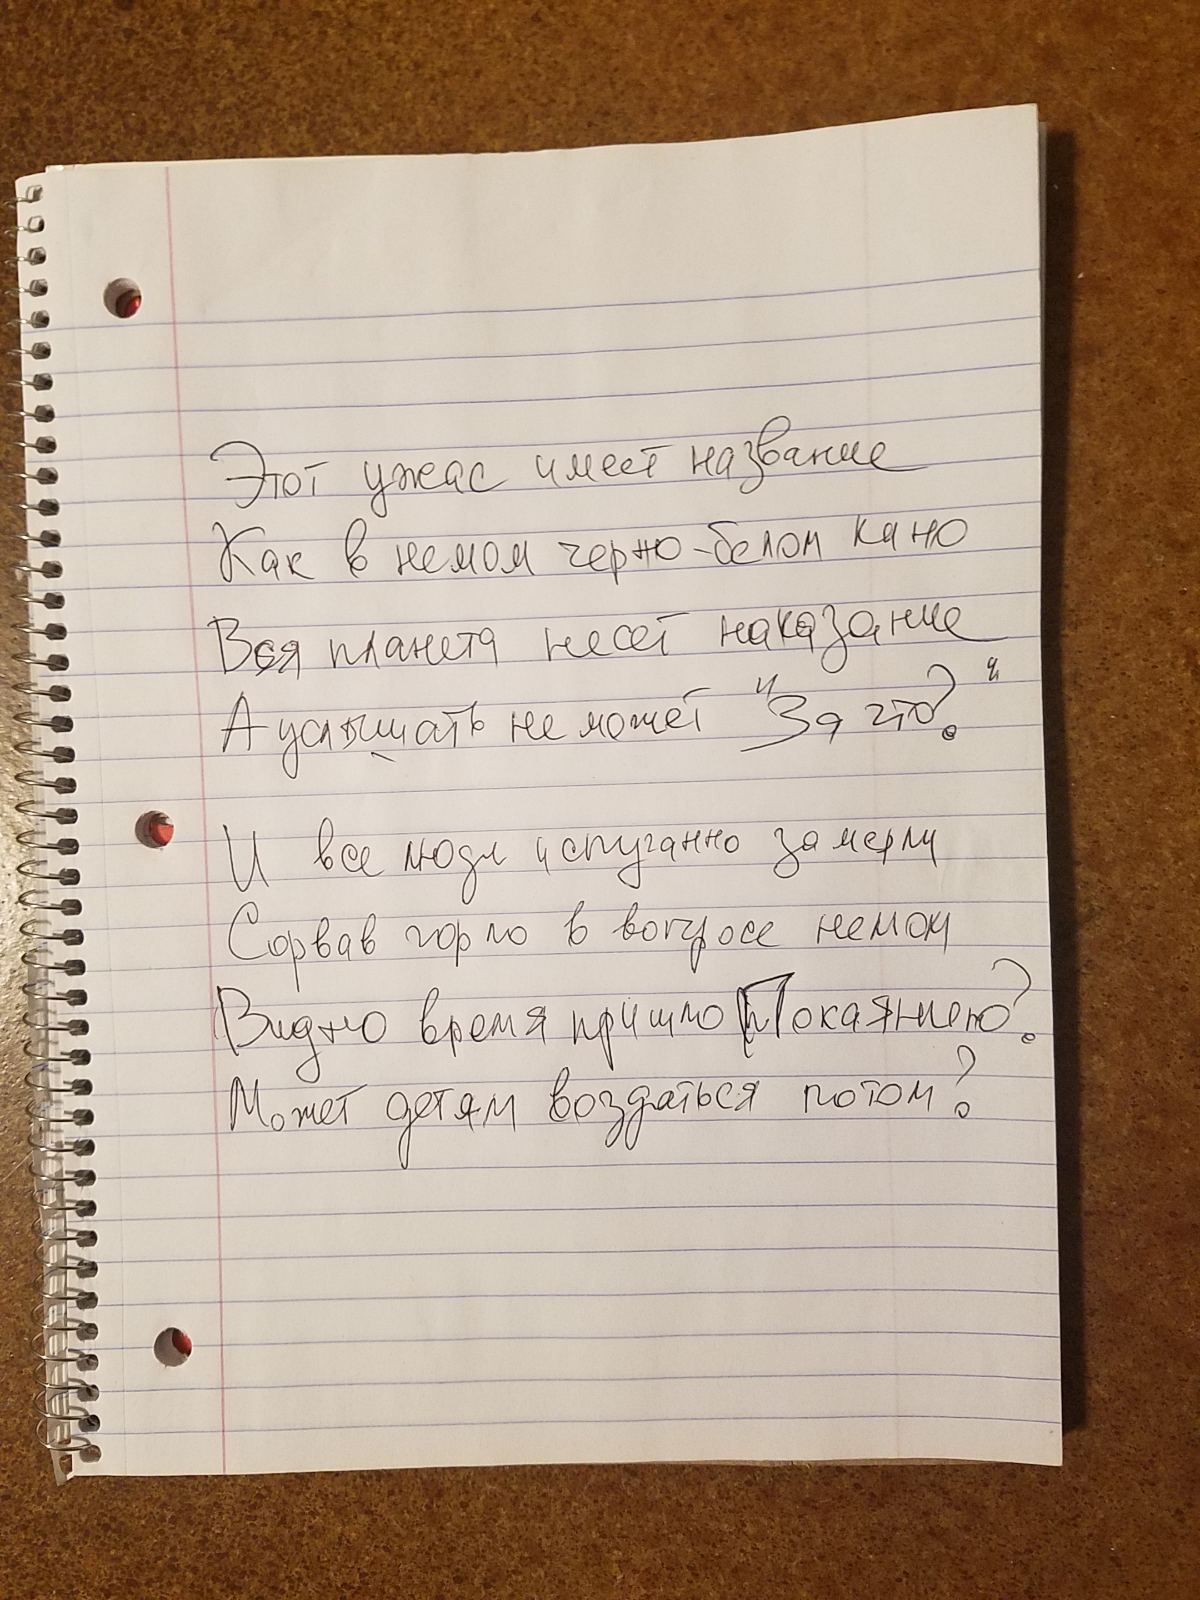 Этот ужас имеет название
Как в немом черно-белом кино
Вся планета несет наказание
А услышать не может "За что?"
И все люди испуганно замерли
Сорвав горло в вопросе немом
Видно время пришло Покаянию?
Может детям воздаться потом?